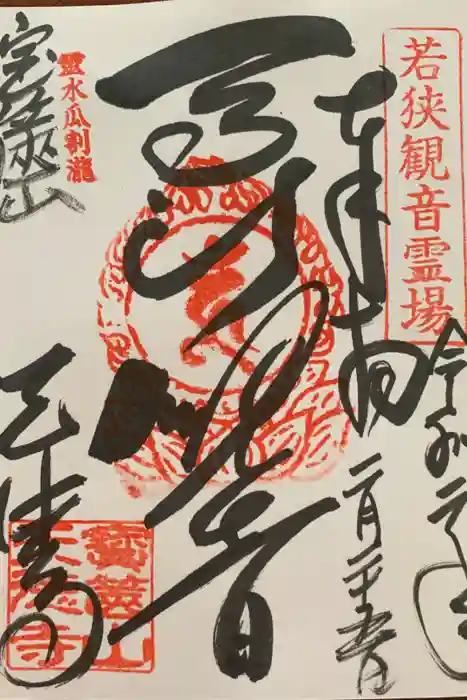 若狭観音霊場
令和二年
奉拝
二月二十
馬頭観音
靈水瓜割瀧
宝篋山
天徳寺
寶篋山
天徳寺